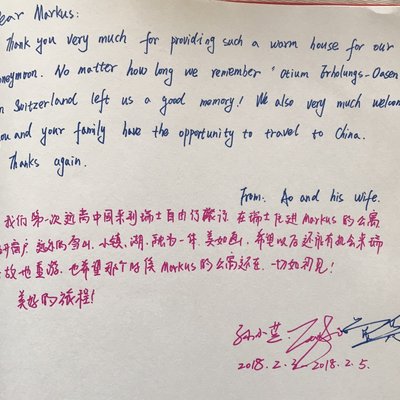 ear Markus:
Thank you very much for providing such a worm house for our
neymoon. No matter how long we remember "Otium Erholungs-Oasen
n Soitzerland left us a good memory! We also very much welcom
ou and your family have the opportunity to travel to China.
Thanks again.
From: Ao and his wife.
我们第一次远离中国来到瑞士自由行 在瑞士住进Markus的公寓
开窗户 远处的雪山、小镇、湖,融为一体,美如画,希望以后还能有机会来瑞
故地重游,也希望那个时候Markus的公寓还在,一切如初见!
美好的旅程!
2018.2. 2018.2.5.